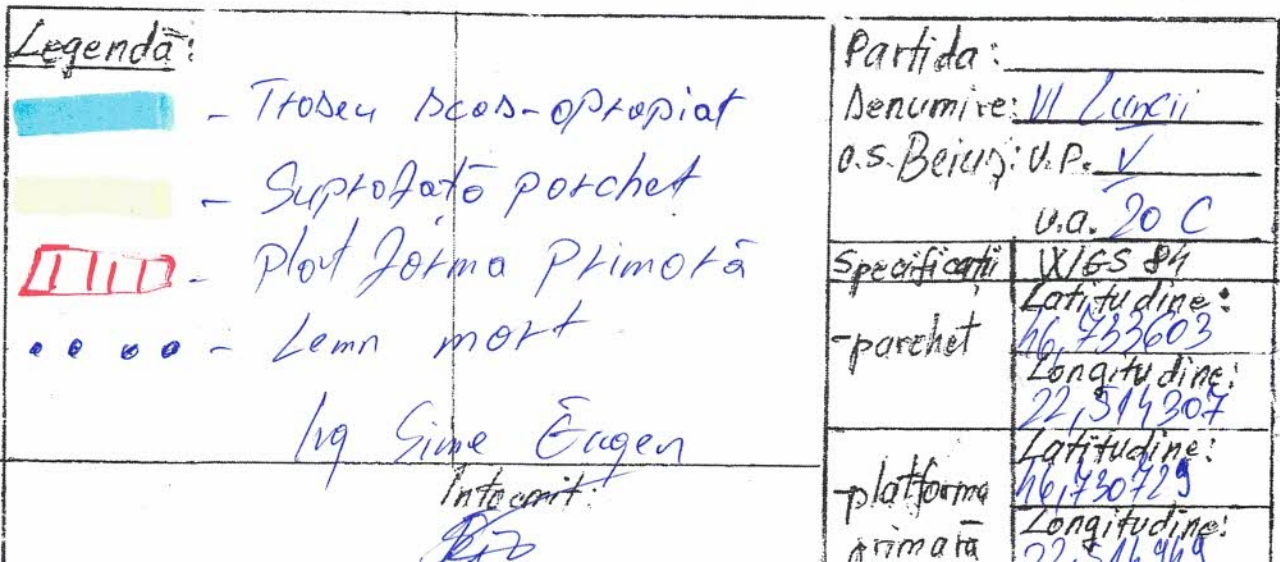 Legendă:
- Traseu scos-apropiat
- Suprafată parchet
- Plat forma Primară
- Lemn mort
Ing Sime Eugen
Intocmit:
Partida:
Denumire: Vl Luncii
O.S. Beiuș: U.P. V
u.a. 20 C
Specificații WGS 84
-parchet
Latitudine:
46,733603
Longitudine:
22,514307
-platforma primară
Latitudine:
46,730729
Longitudine:
22,514949